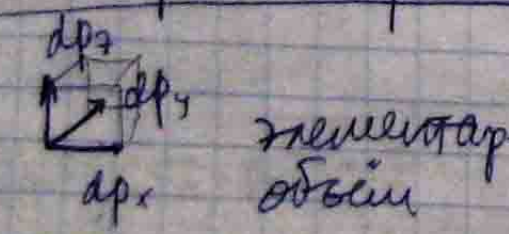 dpz
dpy
dpx
элементар
объём